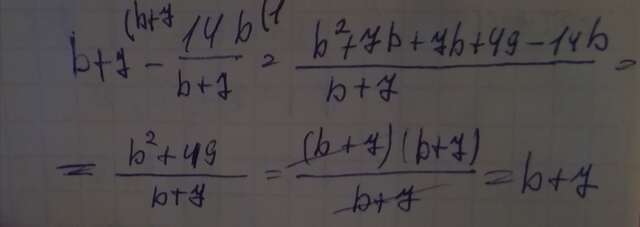 b+7 (b+7 - 14b (1 / b+7 = b²+7b+7b+49-14b / b+7 =
= b²+49 / b+7 = (b+7)(b+7) / b+7 = b+7